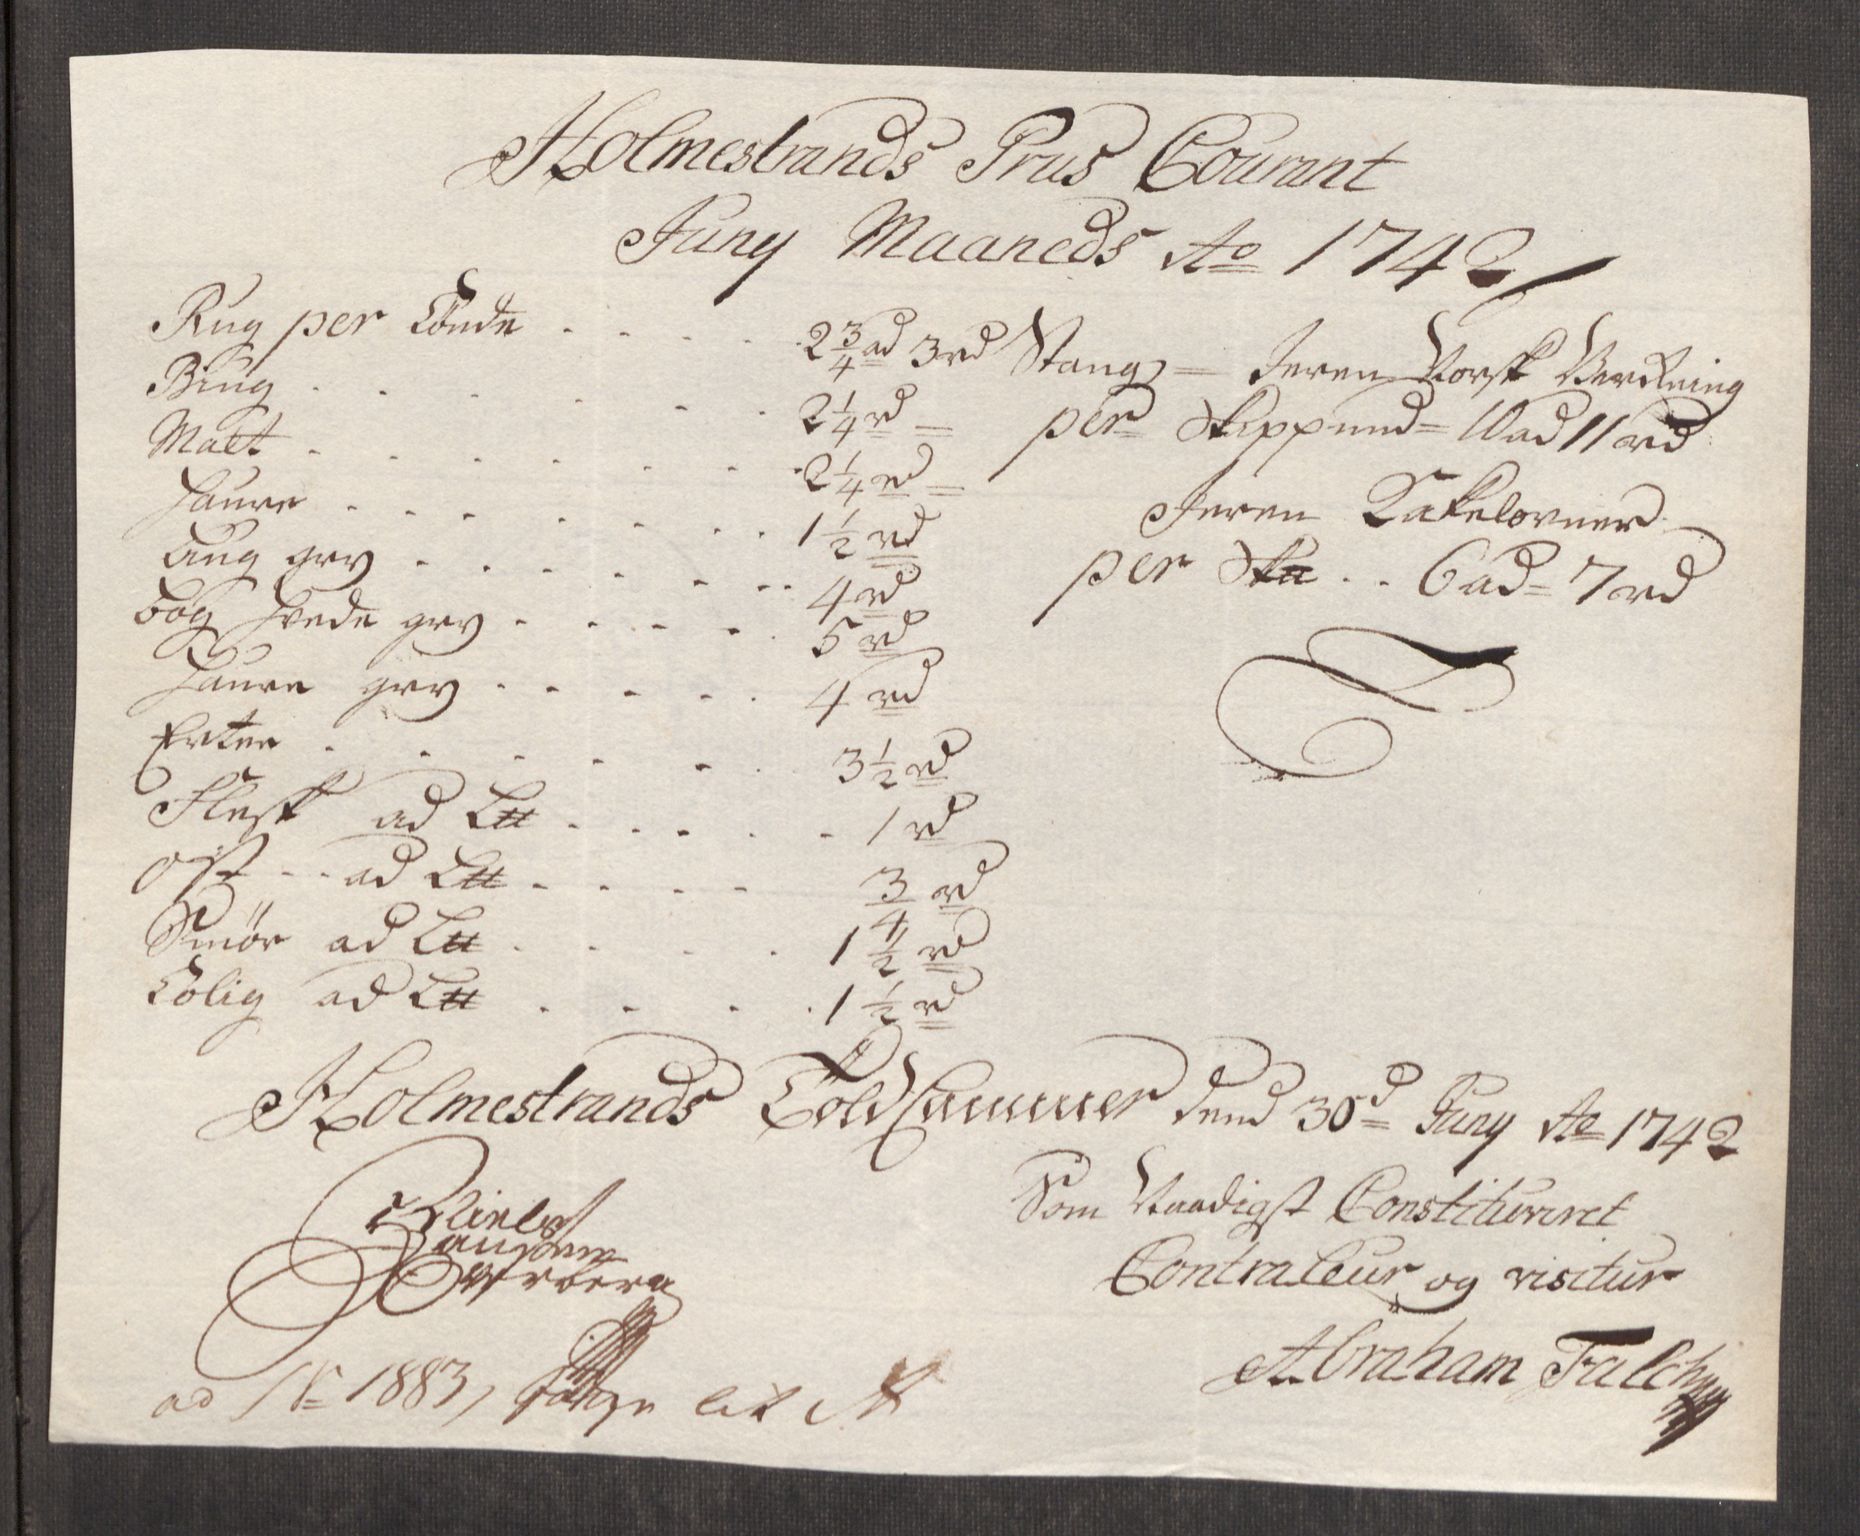 Holmestrands Prus Courant
Juny Maaneds Ao 1742
Rug per Tönde . . . . . . 2 3/4 ad 3 rd
Biug . . . . . . 2 1/4 rd =
Malt . . . . . . . 2 1/4 rd =
Haure . . . . . . . . 1 1/2 rd
Biug gryn . . . . . . . 4 rd
Bog Hvede gryn . . . . . 5 rd
Haure gryn . . . . . 4 rd
Erter . . . . . . 3 1/2 rd
Flesk ad L℔ . . . . . 1 rd
Ost . . ad L℔ . . . . 3/4 rd
Smör ad L℔ . . . . 1 1/2 rd
Tolig ad L℔ . . . . 1 1/2 rd
Stang = Jeren Norsk Verkning
per Skippund = 10 ad 11 rd
Jeren Kakelovner
per Sk℔ . . 6 ad = 7 rd
Holmestrands Told Cammer dend 30d Juny Ao 1742
Niels
Som Naadigst Constitueret
Contraleur og visitur
Abraham Falch
ad No 1883, lit A